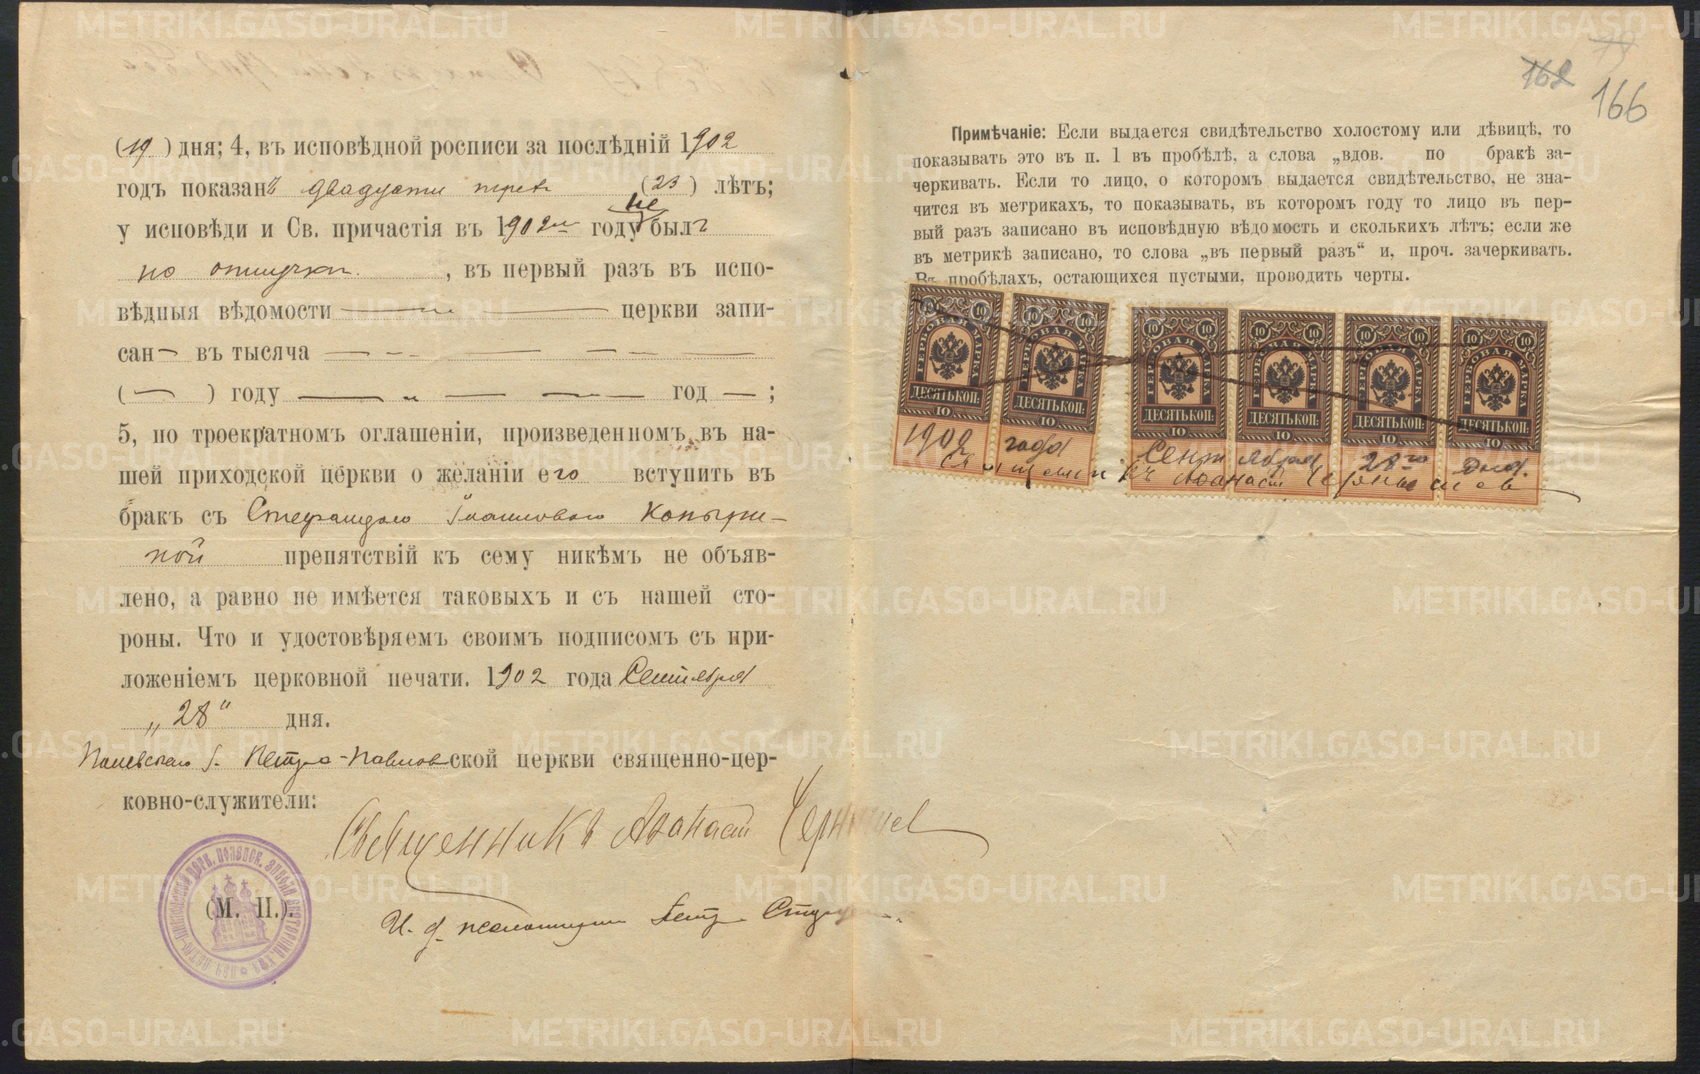 (19) дня; 4, въ исповѣдной росписи за послѣднiй 1902
годъ показанъ двадцати трехъ (23) лѣтъ;
у исповѣди и Св. причастiя въ 1902 году не былъ
по отлучкѣ, въ первый разъ въ испо-
вѣдныя вѣдомости — церкви запи-
сан— въ тысяча —
( — ) году — год — ;
5, по троекратномъ оглашенiи, произведенномъ въ на-
шей приходской церкви о желанiи его вступить въ
бракъ съ Стефанидою Копыри-
ной препятствiй къ сему никѣмъ не объяв-
лено, а равно не имѣется таковыхъ и съ нашей сто-
роны. Что и удостовѣряемъ своимъ подписомъ съ при-
ложенiемъ церковной печати. 1902 года Сентября
„28“ дня.
Полевскаго з. Петро-Павловской церкви священно-цер-
ковно-служители:
Священникъ Аѳанасiй Чернышев
И. д. псаломщика Петр
(М. П.).
79
162
166
Примѣчанiе: Если выдается свидѣтельство холостому или дѣвицѣ, то
показывать это въ п. 1 въ пробѣлѣ, а слова „вдов. по бракѣ за-
черкивать. Если то лицо, о которомъ выдается свидѣтельство, не зна-
чится въ метрикахъ, то показывать, въ которомъ году то лицо въ пер-
вый разъ записано въ исповѣдную вѣдомость и сколькихъ лѣтъ; если же
въ метрикѣ записано, то слова „въ первый разъ“ и, проч. зачеркивать.
Въ пробѣлахъ, остающихся пустыми, проводить черты.
ГЕРБОВАЯ МАРКА ГЕРБОВАЯ МАРКА ГЕРБОВАЯ МАРКА ГЕРБОВАЯ МАРКА ГЕРБОВАЯ МАРКА ГЕРБОВАЯ МАРКА
ДЕСЯТЬ КОП: ДЕСЯТЬ КОП: ДЕСЯТЬ КОП: ДЕСЯТЬ КОП: ДЕСЯТЬ КОП: ДЕСЯТЬ КОП:
10 10 10 10 10 10
1902 года Сентября 28го дня.
Священникъ Аѳанасiй Чернышев
METRIKI.GASO-URAL.RU